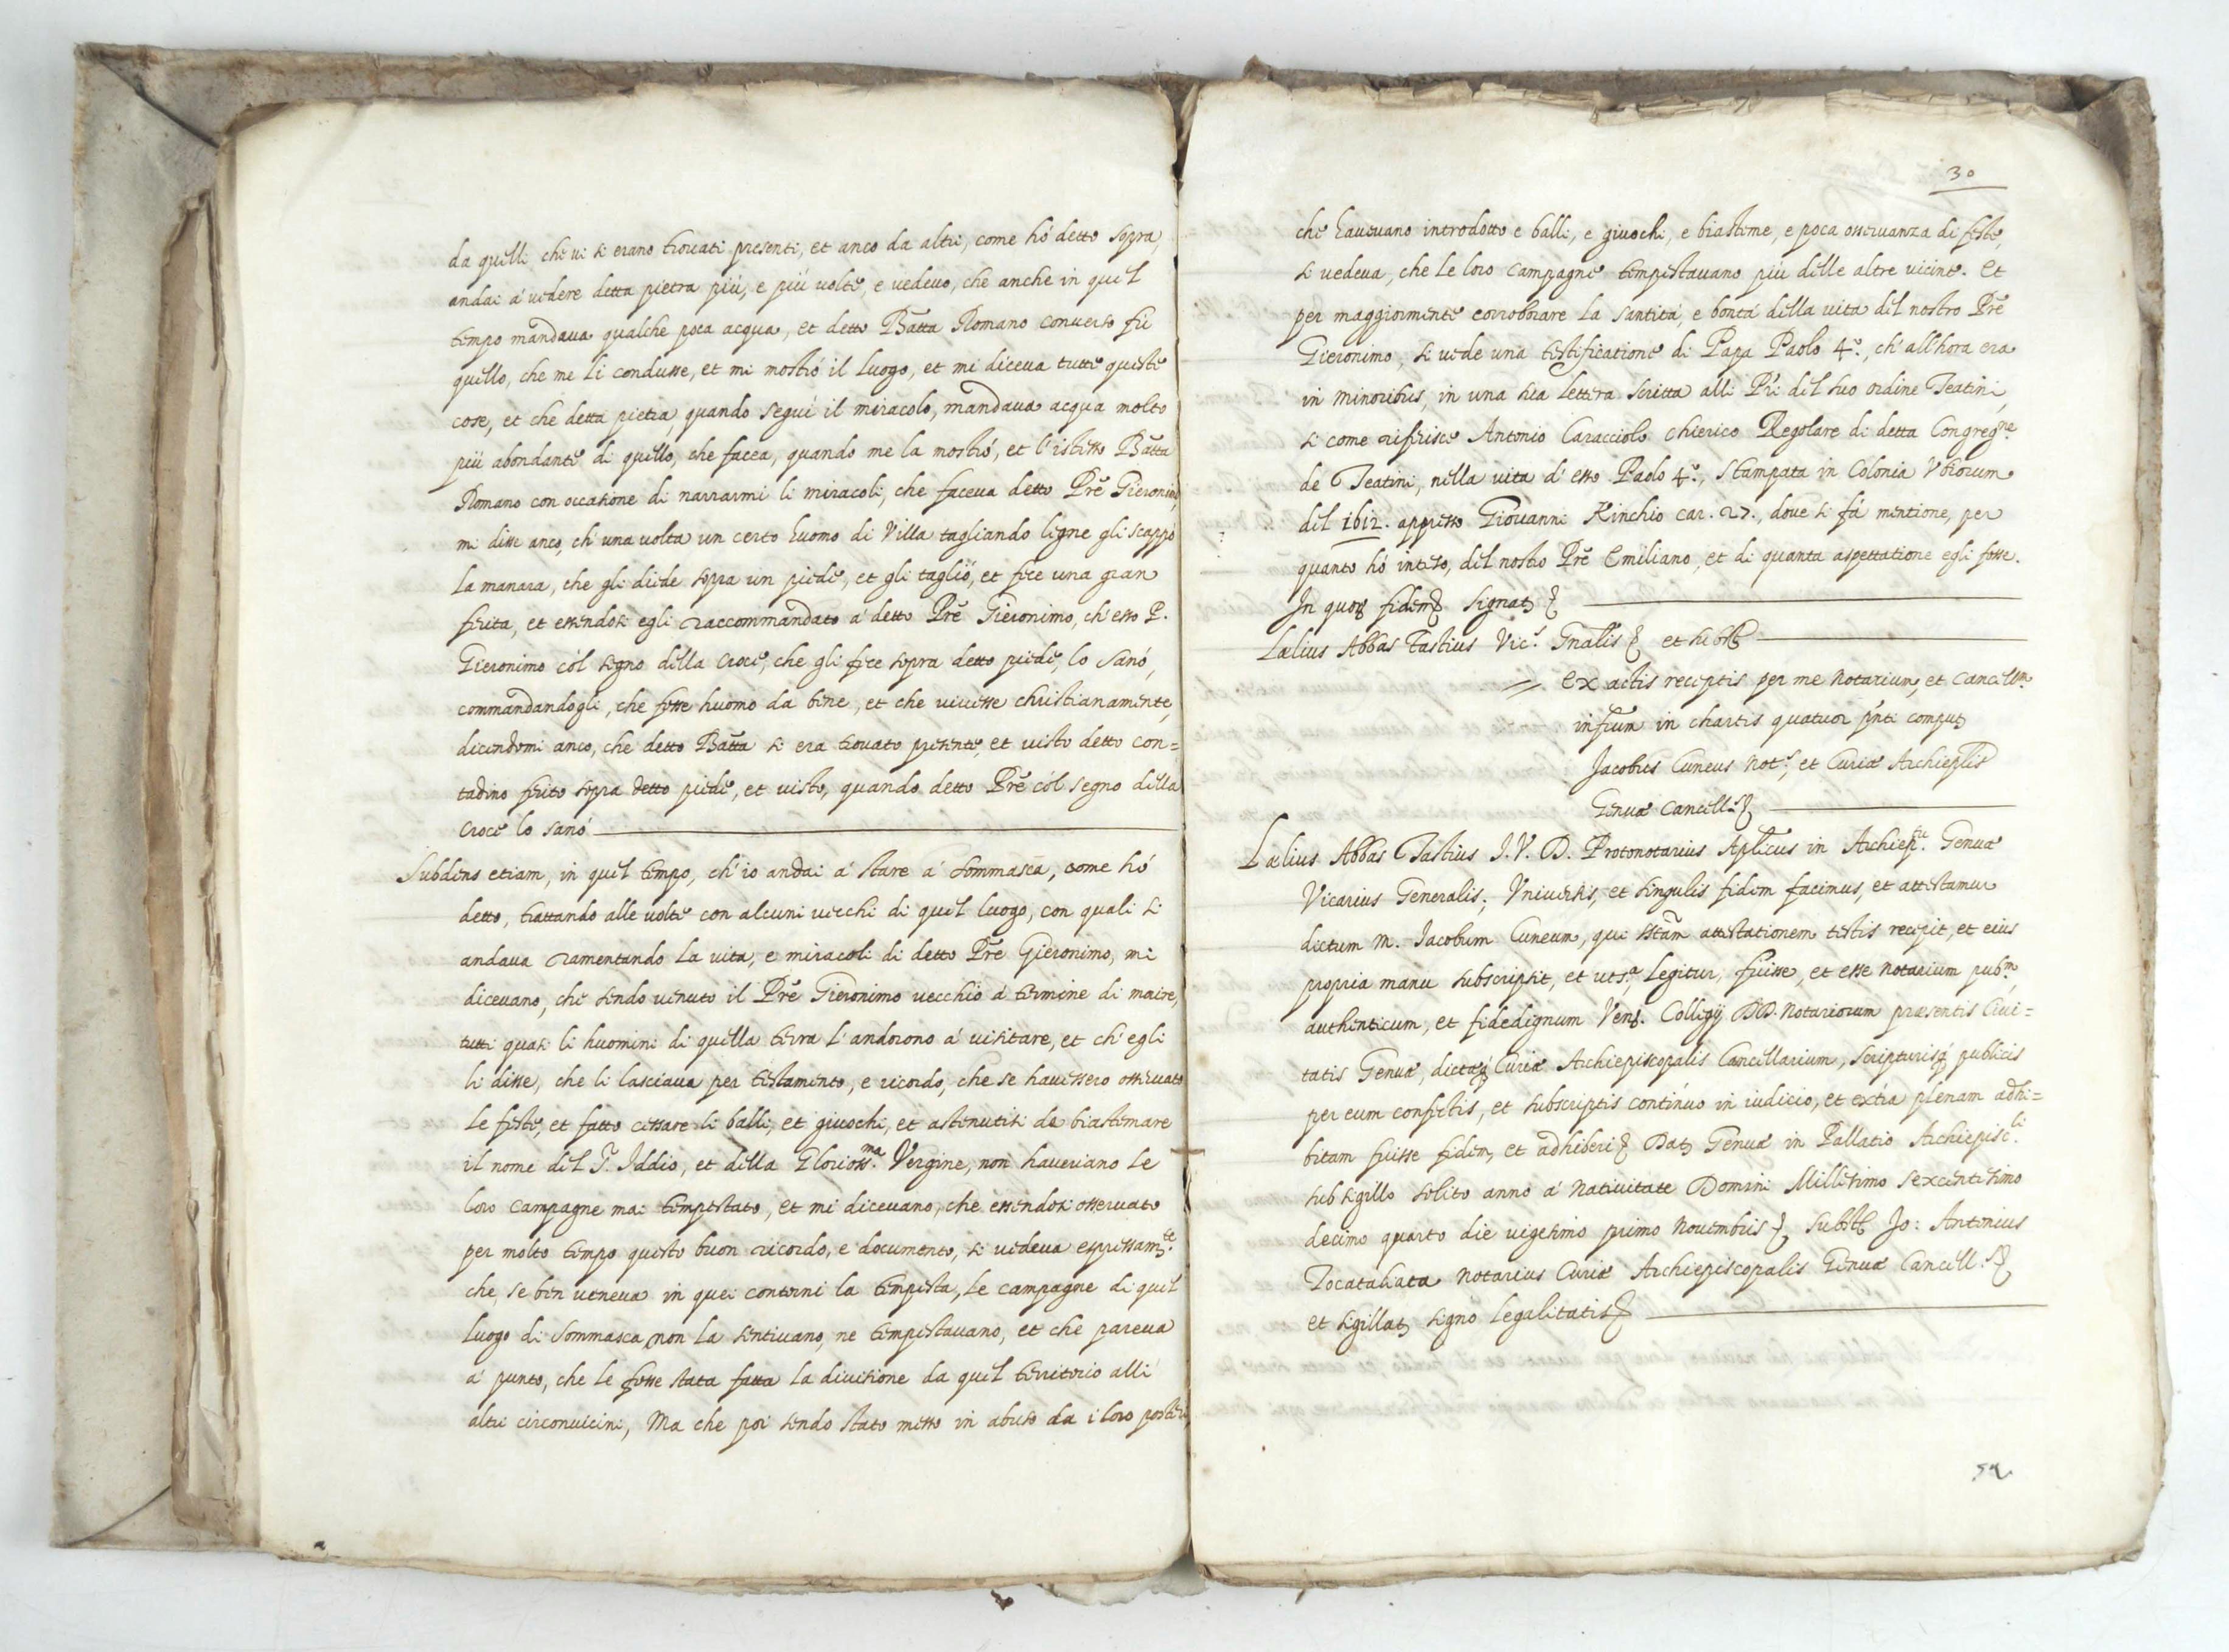 da quelli che ui si erano trouati presenti, et anco da altri, come hò detto sopra,
andai à uedere detta pietra più, e più uolte, e uedeuo, che anche in quel
tempo mandaua qualche poca acqua, et detto Batta Romano conuerso fù
quello, che me li condusse, et mi mostrò il luogo, et mi diceua tutte queste
cose, et che detta pietra, quando seguì il miracolo, mandaua acqua molto
più abondante di quello, che facea, quando me la mostrò, et l'istesso Batta
Romano con occasione di narrarmi li miracoli, che faceua detto Pre Gieronimo,
mi disse anco, ch'una uolta un certo huomo di Villa tagliando legne gli scappò
la manara, che gli diede sopra un piede, et gli tagliò, et fece una gran
ferita, et essendosi egli raccommandato à detto Pre Gieronimo, ch'esso P.
Gieronimo còl segno della Croce, che gli fece sopra detto piede, lo sanò,
commandandogli, che fosse huomo da bene, et che uiuesse christianamente,
dicendomi anco, che detto Batta si era trouato presente, et uisto detto con=
tadino ferito sopra detto piede, et uisto, quando detto Pre còl segno della
Croce lo sanò
Subdens etiam, in quel tempo, ch'io andai à stare à Sommasca, come hò
detto, trattando alle uolte con alcuni uecchi di quel luogo, con quali si
andaua ramentando la uita, e miracoli di detto Pre Gieronimo, mi
diceuano, che sendo uenuto il Pre Gieronimo uecchio à termine di morire,
tutti quasi li huomini di quella terra l'andorono à uisitare, et ch'egli
li disse, che li lasciaua per testamento, e ricordo, che se hauessero osseruato
le feste, et fatto cessare li balli, et giuochi, et astenutisi da biastemare
il nome del Sr. Iddio, et della Glorioss.ma Vergine, non haueriano le
loro campagne mai tempestato, et mi diceuano, che essendosi osseruato
per molto tempo questo buon ricordo, e documento, si uedeua espressam.te
che, se ben ueneua in quei contorni la tempesta, le campagne di quel
luogo di Sommasca non la sentiuano, ne tempestauano, et che pareua
à punto, che le fosse stata fatta la diuisione da quel territorio alli
altri circonuicini, Ma che poi sendo stato messo in abuso da i loro posteri,
30
che haueuano introdotto e balli, e giuochi, e biasteme, e poca osseruanza di feste,
si vedeua, che le loro campagne tempestauano più delle altre uicine. Et
per maggiormente corroborare la santità, e bontà della vita del nostro Pre
Gieronimo, si vede una testificatione di Papa Paolo 4.º, ch'all'hora era
in minoribus, in una sua lettera scritta alli Pri del suo ordine Teatini,
si come riferisce Antonio Caracciolo Chierico Regolare di detta Congreg.ne
de Teatini, nella vita d'esso Paolo 4.º, stampata in Colonia Vbiorum
del 1612. appresso Giouanni Kinchio car. 27., doue si fà mentione, per
quanto hò inteso, del nostro Pre Emiliano, et di quanta aspettatione egli fosse.
In quor fidem Signat
Lælius Abbas Tastius Vic.s Gnalis et subst
Ex actis receptis per me Notarium, et Cancell.m
infrum in chartis quatuor pnti comput
Jacobus Cuneus Not.s, et Curiæ Archieplis
Genuæ Cancell.s
Lælius Abbas Tastius I. V. D. Protonotarius Aplicus in Archiep.tu Genuæ
Vicarius Generalis; Vniuersis, et singulis fidem facimus, et attestamur
dictum M. Iacobum Cuneum, qui sstam attestationem testis recepit, et eius
propria manu subscripsit, et uts.a legitur, fuisse, et esse Notarium pub.m,
authenticum, et fidedignum Ven. Collegij DD. Notariorum præsentis Ciui=
tatis Genuæ, dictæq Curiæ Archiepiscopalis Cancellarium, scripturisq publicis
per eum confectis, et subscriptis continuo in iudicio, et extra plenam adhi=
bitam fuisse fidem, et adhiberi Dat Genuæ in Pallatio Archiepisc.li
sub sigillo solito anno à Natiuitate Domini Millesimo sexcentesimo
decimo quarto die uigesimo primo Nouembris subst Jo: Antonius
Tocataliata Notarius Curiæ Archiepiscopalis Genuæ Cancell.s
et sigillat signo legalitatis